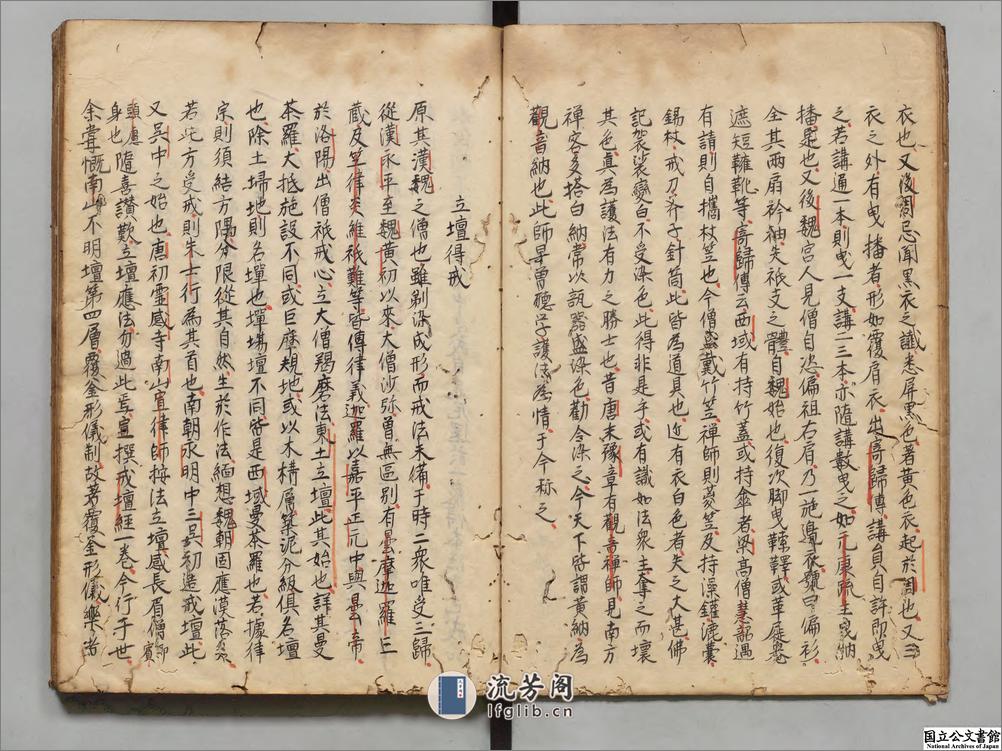 衣也又後周忌聞黑衣之讖悉屏黑色著黃色衣起於周也又三
衣之外有曳播者形如覆肩衣出寄歸傳講員自許即曳
之若講通一本則曳一支講二三本亦隨講數曳之如元康疏主曳納
播是也又後魏宮人見僧自恣偏袒右肩乃一施肩衣號曰偏衫
全其兩扇衿袖失祇支之體自魏始也復次腳曳鞾鞋或革屣
遮短靴靴等寄歸傳云西域有持竹蓋或持傘者梁高僧慧韶遇
有請則自攜杖笠也今僧盛戴竹笠禪師則菱笠及持澡鑵漉囊
錫杖戒刀斧子針筒此皆為道具也近有衣白色者失之大甚佛
記袈裟變白不受染色此得非是乎或有識如法眾主奪之而壞
其色真為護法有力之勝士也昔唐末豫章有觀音禪師見南方
禪客多搭白納常以瓿器盛染色勸令染之今天下皆謂黃納為
觀音納也此師早曾聽學護法為情于今稱之
立壇得戒
原其漢魏之僧也雖剃染成形而戒法未備于時二眾唯受三歸
從漢永平至魏黃初以來大僧沙弥曾無區別有曇摩迦羅三
藏及竺律炎維祇難等皆傳律義迦羅以嘉平正元中與曇帝
於洛陽出僧祇戒心立大僧羯磨法東土立壇此其始也詳其曼
荼羅大抵施設不同或巨摩規地或以木構層築泥分級俱名壇
也除土掃地則名墠也墠場壇不同皆是西域曼荼羅也若據律
宗則須結方隅分限從其自然生於作法緬想魏朝固應漠落
若此方受戒則朱士行為其首也南朝永明中三吳初造戒壇此
又吳中之始也唐初靈感寺南山宣律師按法立壇感長眉僧即賓
頭盧
身也隨喜讚歎立壇應法勿過此焉宣撰戒壇經一卷今行于世
余嘗慨南山不明壇第四層覆釜形儀制故著覆釜形儀樂者
流芳閣
lfglib.cn
国立公文書館
National Archives of Japan